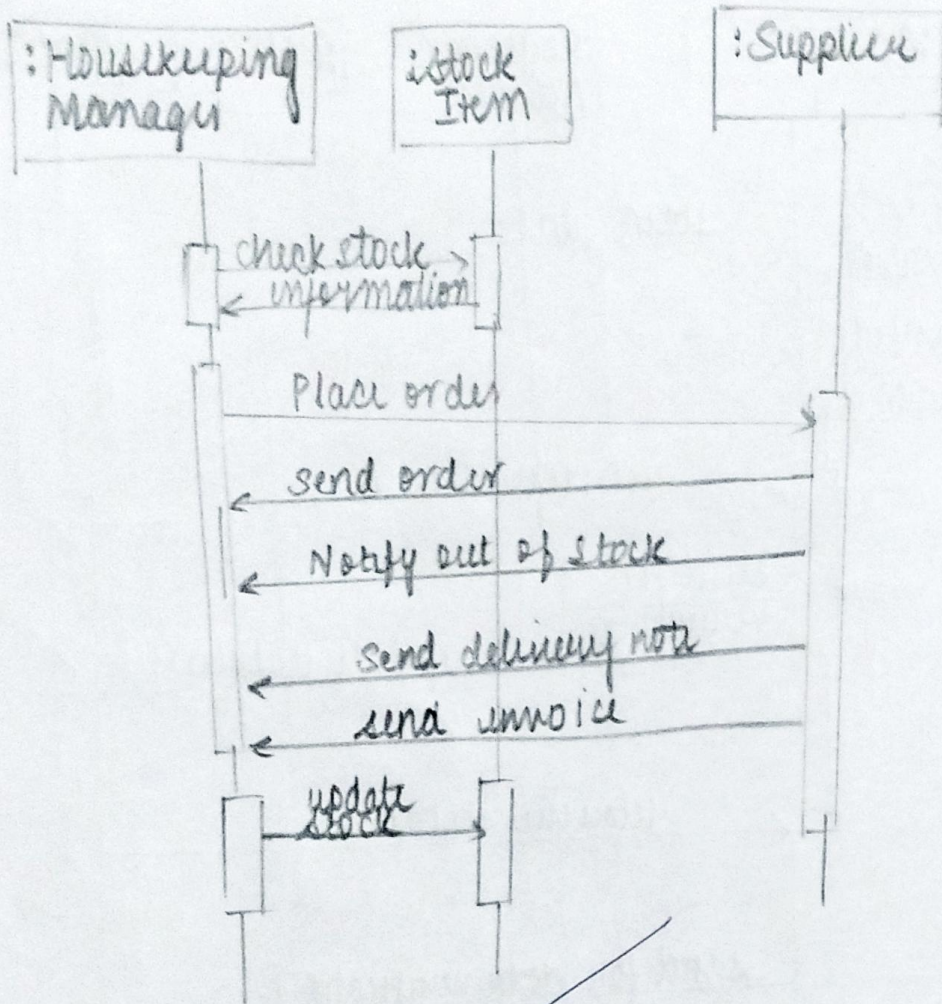 :Housekeeping
Manager
:Stock
Item
:Supplier
check stock
information
Place order
send order
Notify out of stock
send delivery note
send invoice
update
stock